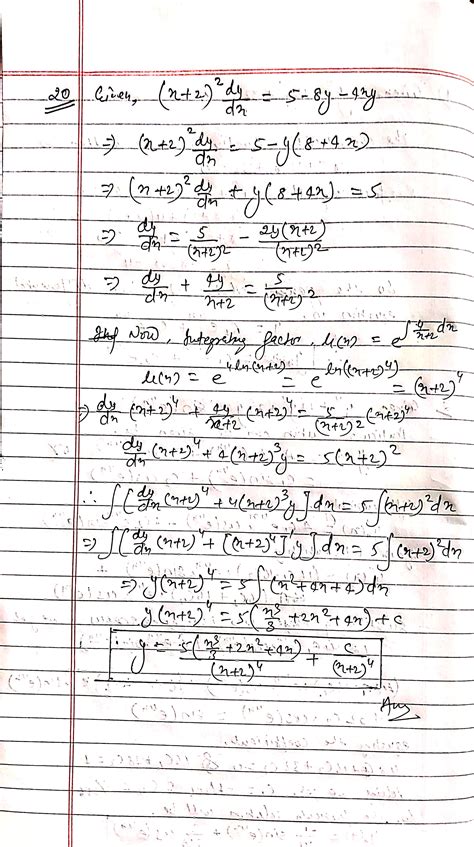 20 Given, (x+2)² dy/dx = 5-8y-4xy
⇒ (x+2)² dy/dx = 5-y(8+4x)
⇒ (x+2)² dy/dx + y(8+4x) = 5
⇒ dy/dx = 5/(x+2)² - 2y(x+2)/(x+2)²
⇒ dy/dx + 4y/(x+2) = 5/(x+2)²
Now, Integrating factor, μ(x) = e^∫4/(x+2) dx
μ(x) = e^(4ln(x+2)) = e^(ln((x+2)⁴)) = (x+2)⁴
⇒ dy/dx (x+2)⁴ + 4y/(x+2) (x+2)⁴ = 5/(x+2)² (x+2)⁴
dy/dx (x+2)⁴ + 4(x+2)³y = 5(x+2)²
∴ ∫[dy/dx (x+2)⁴ + 4(x+2)³y] dx = 5∫(x+2)² dx
⇒ ∫[dy/dx (x+2)⁴ + [(x+2)⁴]' y] dx = 5∫(x+2)² dx
⇒ y(x+2)⁴ = 5∫(x²+4x+4) dx
y(x+2)⁴ = 5(x³/3 + 2x² + 4x) + c
∴ y = 5(x³/3 + 2x² + 4x)/(x+2)⁴ + c/(x+2)⁴
Ans